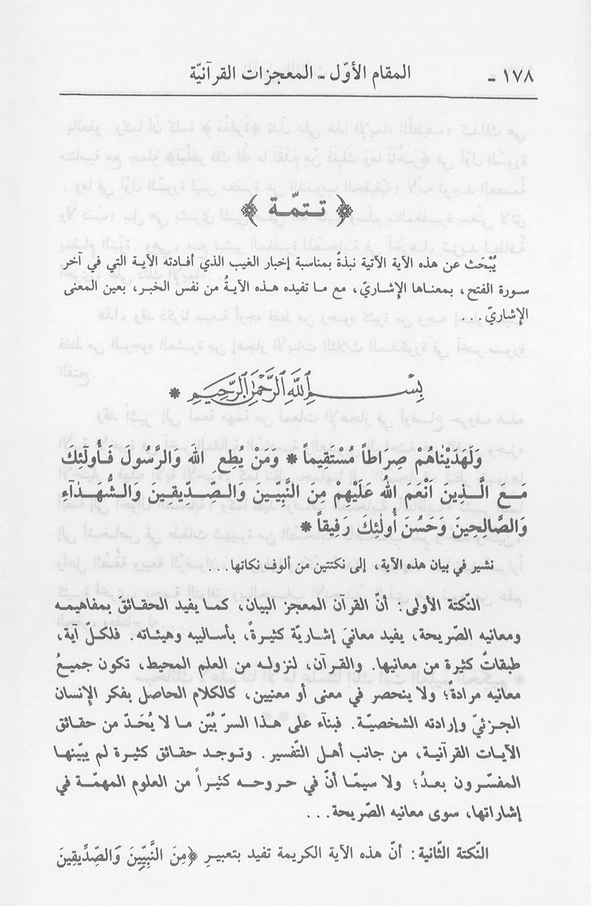 ١٧٨ - المقام الأوّل - المعجزات القرآنيّة
﴿ تـتمّـة ﴾
يُبْحَث عن هذه الآية الآتية نبذةٌ بمناسبة إخبار الغيب الذي أفادته الآيـة التي في آخر
سـورة الفتح، بمعنـاها الإشـاريّ، مع ما تفيده هـذه الآيـةُ من نفس الخبـر، بعين المعنى
الإشاريّ...
بِسْـمِ اللهِ الرَّحْمٰنِ الرَّحِيمِ *
وَلَهَدَيْنَاهُمْ صِرَاطاً مُسْتَقِيماً * وَمَنْ يُطِعِ اللهَ وَالرَّسُولَ فَـأُولَئِكَ
مَـعَ الَّـذِينَ اَنْعَمَ اللهُ عَلَيْهِمْ مِنَ النَّبِيّـينَ وَالصِّـدِّيقـينَ وَالشُّهَـدَآءِ
وَالصَّالِحِينَ وَحَسُنَ أُولَئِكَ رَفِيقاً *
نشير في بيان هذه الآية، إلى نكتتين من ألوف نكاتها...
النّكتة الأولى: أنّ القرآن المعجز البيان، كمـا يفيد الحقائـق بمفاهيمـه
ومعانيه الصّريحة، يفيد معانيَ إشـاريّة كثيـرةً، بأسـاليبه وهيئاته. فلكـلّ آية،
طبقاتٌ كثيرة من معانيها. والقرآن، لنزولـه من العلم المحيط، تكون جميعُ
معانيه مرادةً؛ ولا ينحصر في معنى أو معنيين، كالكلام الحاصل بفكر الإنسان
الجـزئيّ وإرادته الشخصيّـة. فبنـاء على هـذا السرّ بُيّن ما لا يُحَـدّ من حقائق
الآيـات القرآنيـة، من جانب أهـل التّفسير. وتـوجـد حقائق كثيـرة لم يبيّنهـا
المفسّـرون بعـدُ؛ ولا سيمّا أنّ في حروحـه كثيـراً من العلوم المهمّـة في
إشاراتها، سوى معانيه الصّريحة...
النّكتة الثّانية: أنّ هذه الآية الكريمة تفيد بتعبيرِ ﴿مِنَ النَّبِيّينَ وَالصِّدِّيقِينَ